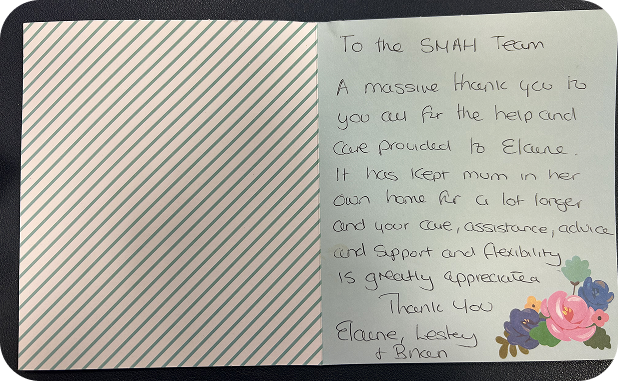 To the SMAH Team
A massive thank you to
you all for the help and
care provided to Elaine.
It has kept mum in her
own home for a lot longer
and your care, assistance, advice
and support and flexibility
is greatly appreciated
Thank you
Elaine, Lesley
+ Brian